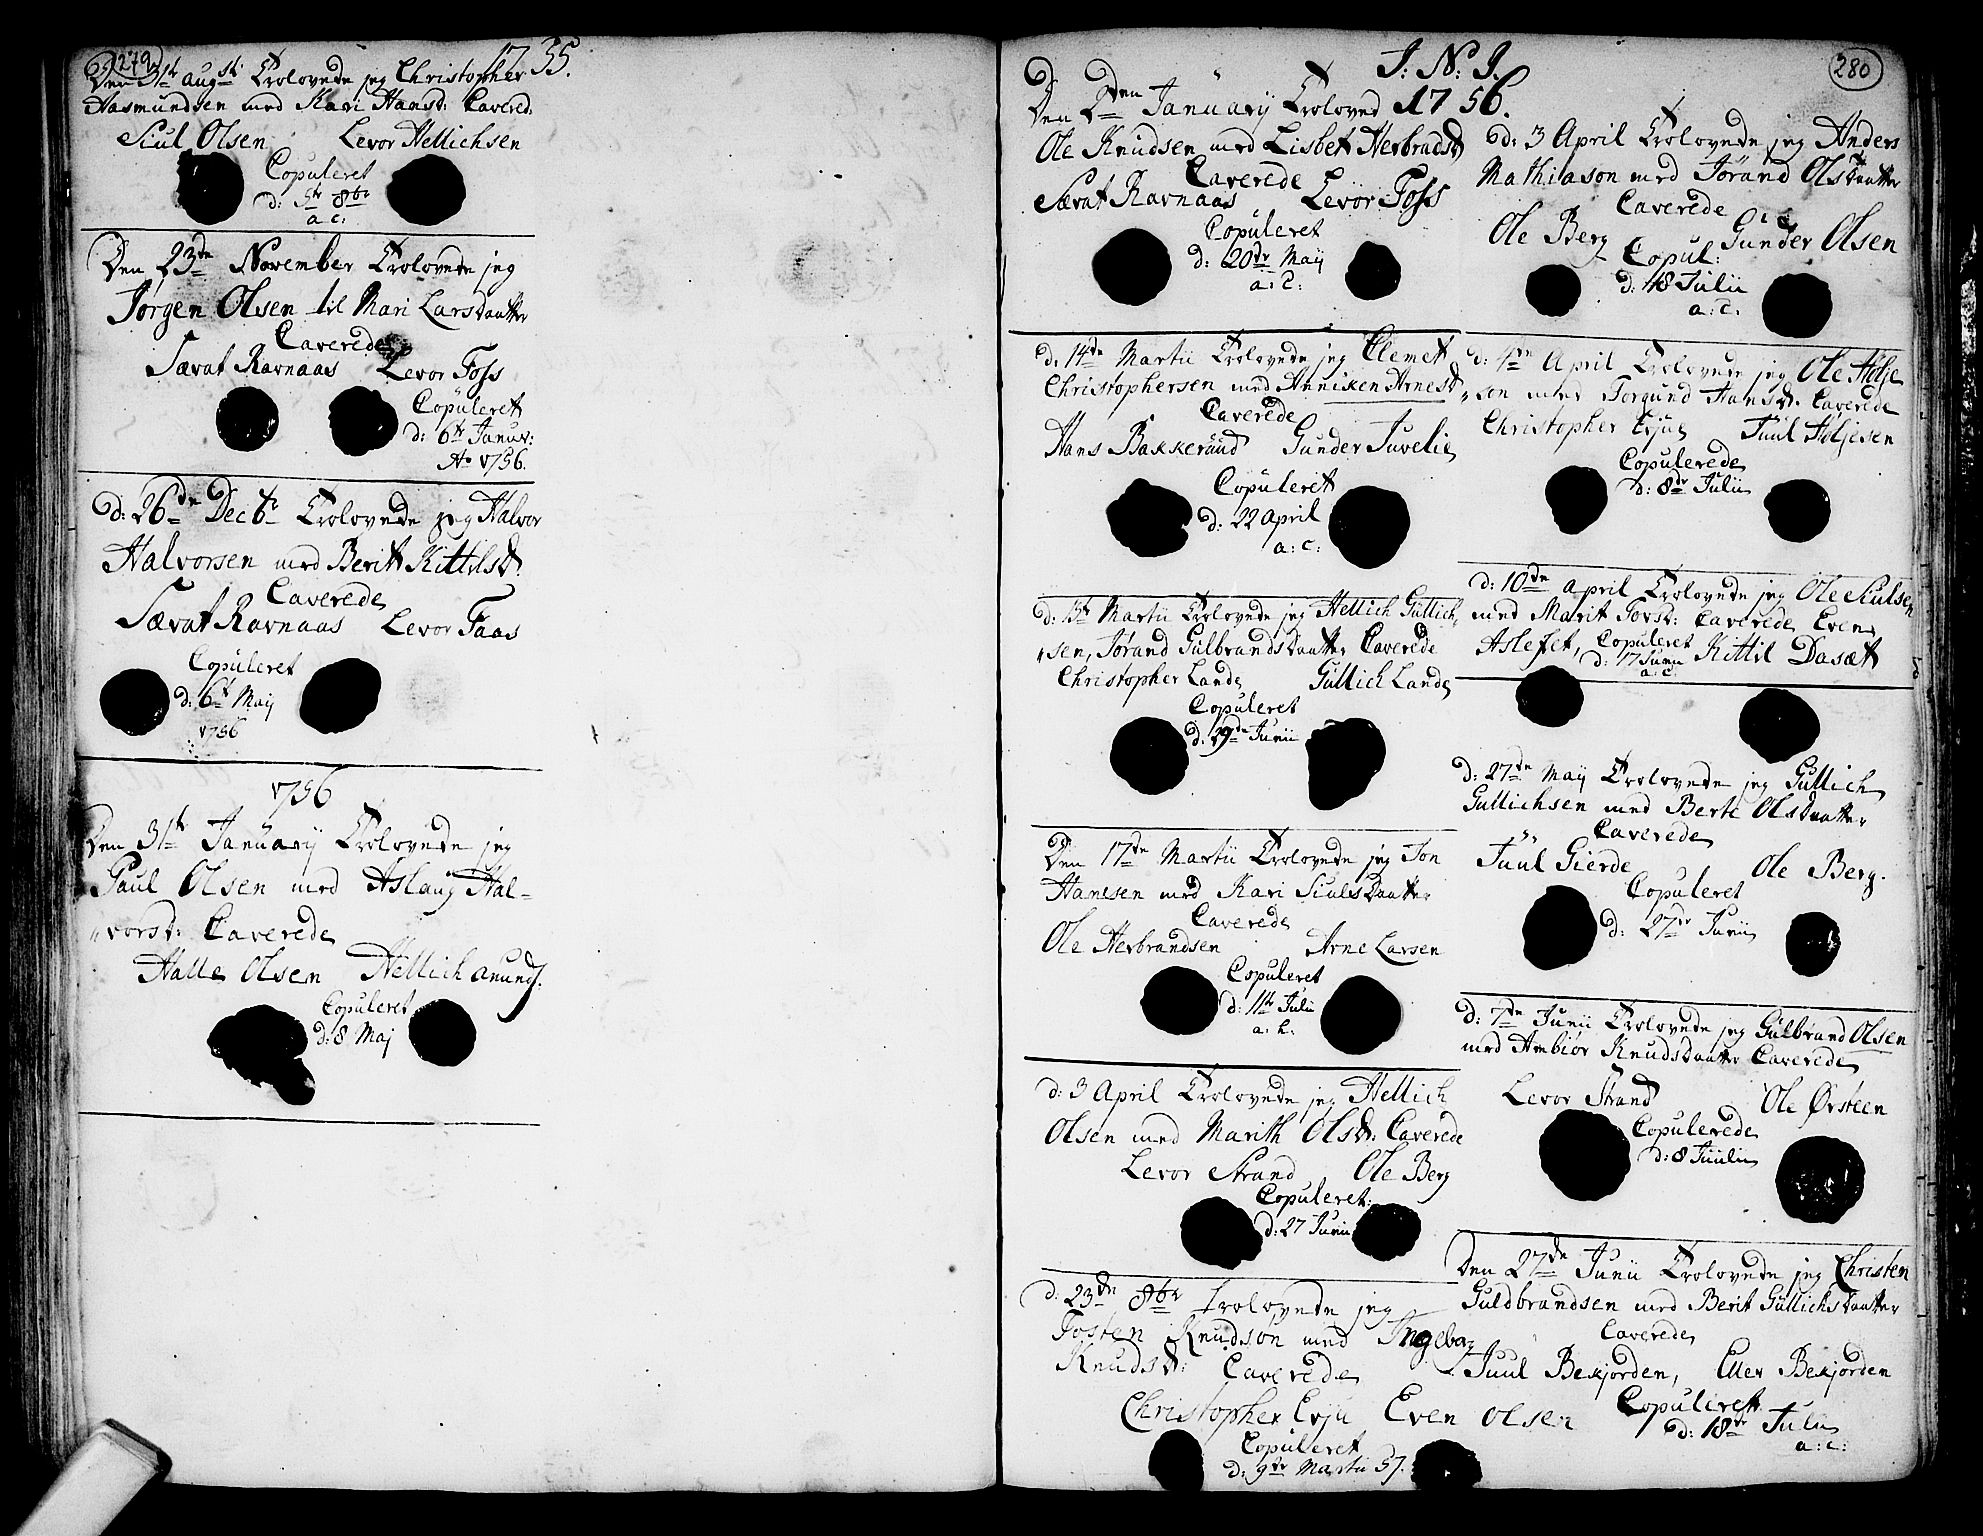 279
1755.
Den 31te augst: Trolovede jeg Christopher
Aasmundsen med Kari Hansd: Cavered:
Siul Olsen Levor Hellichsen
Copuleret
d: 5te 8br
a.c:
Den 23de November Trolovede jeg
Jørgen Olsen til Mari Larsdaatter
Caverede
Tærat Ravnaas Levor Foss
Copuleret
d: 6te Januv:
Ao 1756.
D: 26de Decbr Trolovede jeg Halvor
Halvorsen med Berit Kittilsd.
Caverede
Tærat Ravnaas Levor Faas
Copuleret
d: 6te Maij
1756
1756
Den 31te Januarij Trolovede jeg
Paul Olsen med Aslaug Hal-
vorsd: Caverede
Halle Olsen Hellich anunds.
Copuleret
d: 8 Maj
280
J: N: J.
Den 2den Januarij Troloved 1756.
Ole Knudsen med Lisbet Herbradsd
Caverede
Tærat Ravnaas Levor Foss
Copuleret
d: 20de Maij
a: c.
d: 14de Martii Trolovede jeg Clemet
Christophersen med Anniken Arnesd
Caverede
Hans Bakkerüud Gunder Juvelie
Copuleret
d: 22 April
a: c:
d: 15te Martii Trolovede jeg Hellich Gullich-
sen, Jørand Gulbrandsdaatter Caverede
Christopher Lande Gullich Lande
Copuleret
d: 29de Junii
Den 17de Martii Trolovede jeg Jon
Hansen med Kari Siulsdaatter
Caverede
Ole Herbrandsen Arne Larsen
Copuleret
d: 11te Julii
a. c.
d: 3 April Trolovede jeg Hellich
Olsen med Marith Olsd: Caverede
Levor Strand Ole Berg
Copuleret:
d: 27 Junii
d: 23de 8br Trolovede jeg
Josten Knudson med Ingebor
Knudsd: Caverede
Christopher Evju Even Olsen
Copuleret
d: 9de Martii 57.
d: 3 April Trolovede jeg Anders
Mathiason med Jørand Olsdaatter
Caverede
Ole Berg Gunder Olsen
Copul:
d: 18 Julii
a: c.
d: 4de April Trolovede jeg Ole Hølje
son med Torgund Hansd. Caverede
Christopher Evjue Juul Høljesen
Copulerede
d: 8de Julii
d: 10de April Trolovede jeg Ole Siulsen
med Marit Torsd: Caverede Even
Aslefet, Copuleret Kittil Dasæt
d: 17 Junii
a: c.
d: 27de Maij Trolovede jeg Gullich
Gullichsen med Berte Olsdaatter
Caverede
Juul Gierde Ole Berg.
Copuleret
d: 27de Junii
d: 7de Junii Trolovede jeg Gulbrand Olsen
med Ambiør Knudsdaatter Caverede
Levor Strand Ole Ørsteen
Copulerede
d: 8 Juulii
Den 27de Junii Trolovede jeg Christen
Guldbrandsen med Berit Gullichsdaatter
Caverede
Juul Bekjorden, Eller Bekjorden
Copuleret
d: 18de Julii
a: c: